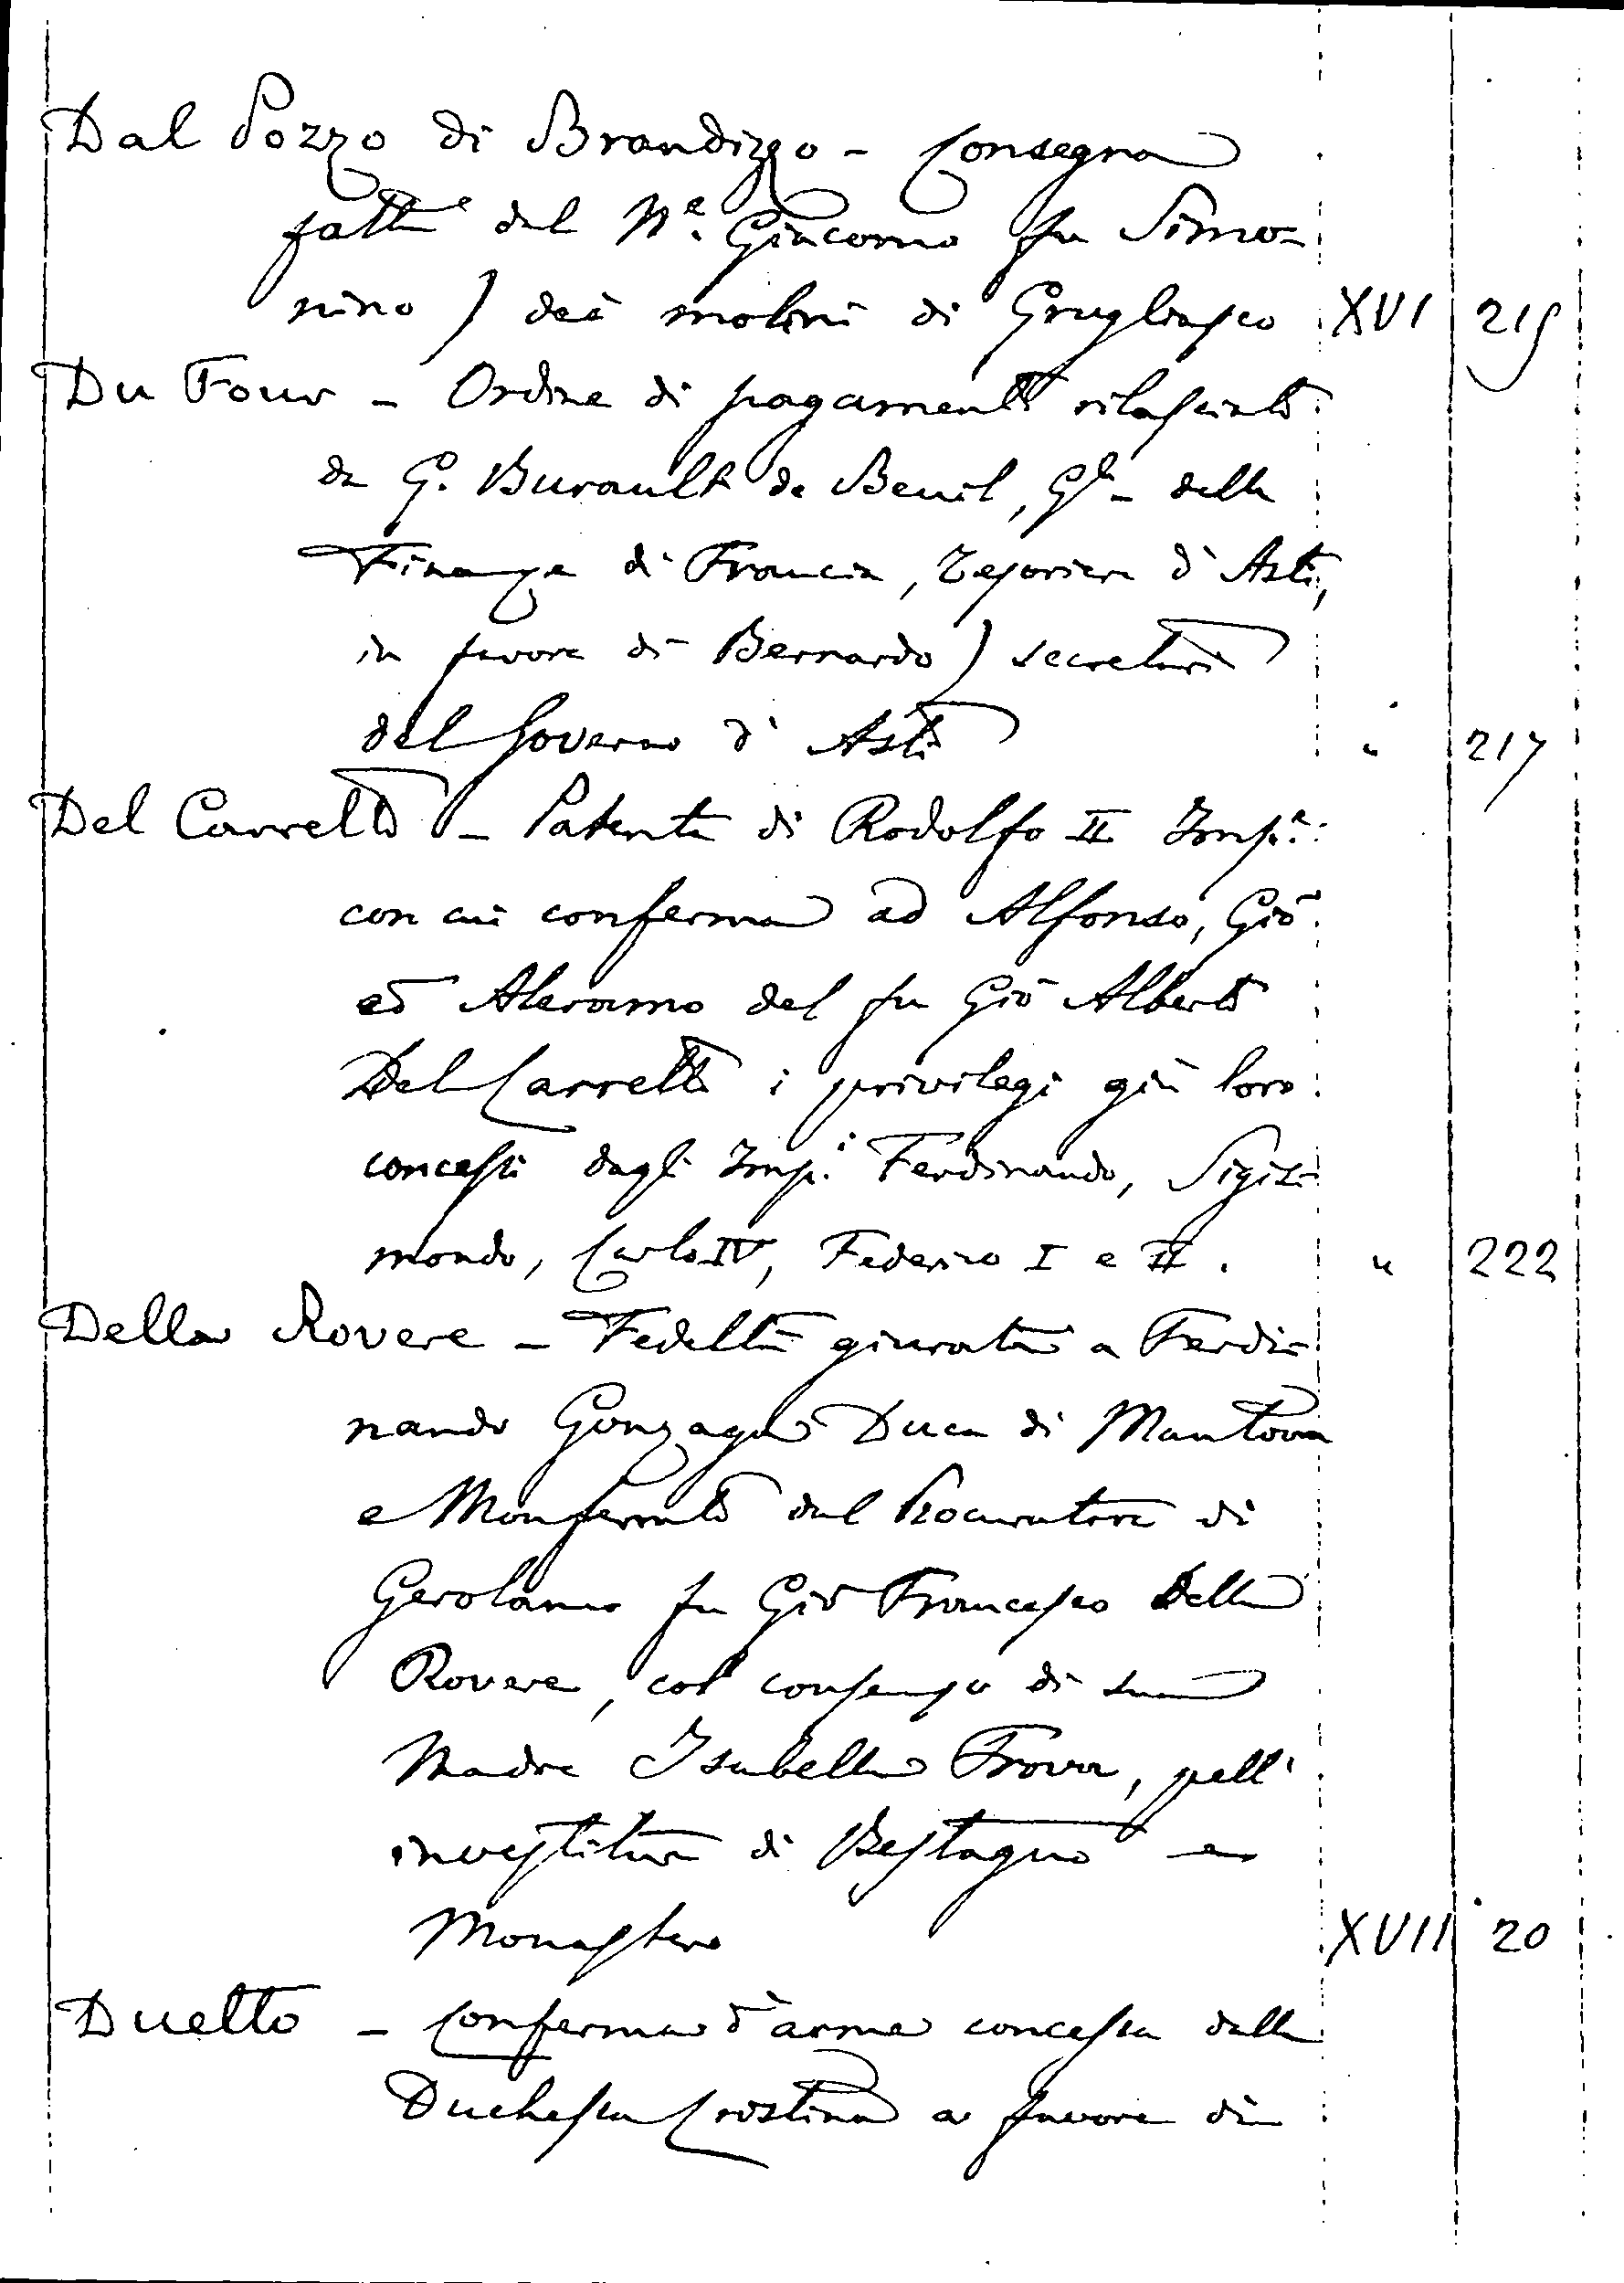 Dal Pozzo di Brandizzo - Consegna
fatta dal N.e Giacomo fu Simo-
nino ) dei molini di Grugliasco XVI 215
Du Four - Ordine di pagamento rilasciato
da G. Burault de Beuil, Gle - delle
Finanze di Francia, Tesoriere d'Asti,
in favore di Bernardo ) secretario
del Governo d'Asti " 217
Del Carretto - Patente di Rodolfo II Imp.e
con cui conferma ad Alfonso, Gio
ed Aleramo del fu Gio Alberto
Del Carretto i privilegi già loro
concessi dagli Imp.i Ferdinando, Sigis-
mondo, Carlo IV, Federico I e II. " 222
Della Rovere - Fedeltà giurata a Ferdi-
nando Gonzaga Duca di Mantova
e Monferrato dal Procuratore di
Gerolamo fu Gio Francesco Della
Rovere, col consenso di sua
Madre Isabella Frova, pell'
investitura di Bestagno e
Monastero XVII 20
Duetto - Conferma d'arma concessa dalla
Duchessa Cristina a favore di